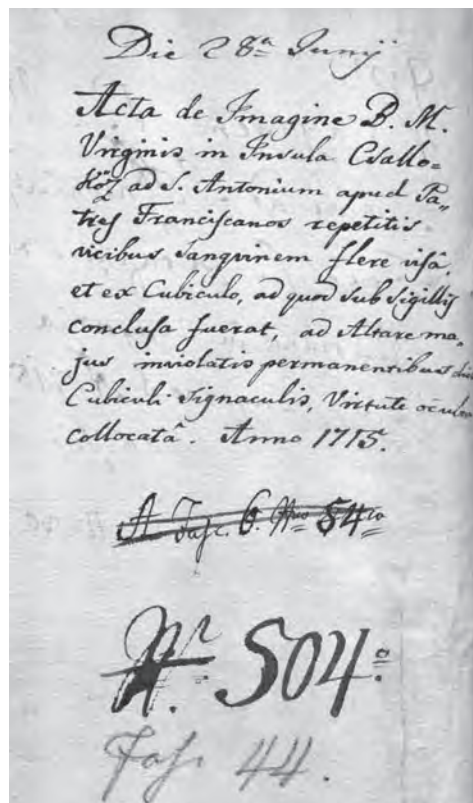 Die 28ª Junij
Acta de Imagine B. M.
Virginis in Insula Csallo=
köz ad S. Antonium apud Pa„
tres Franciscanos repetitis
vicibus Sanguinem flere visâ,
et ex Cubiculo, ad quod sub Sigillis
conclusa fuerat, ad Altare ma„
jus inviolatis permanentibus
Cubiculi Signaculis, Virtute
collocatâ. Anno 1715.
A Fasc. 6. Nro 54to
N. 504º
Fasc. 44.